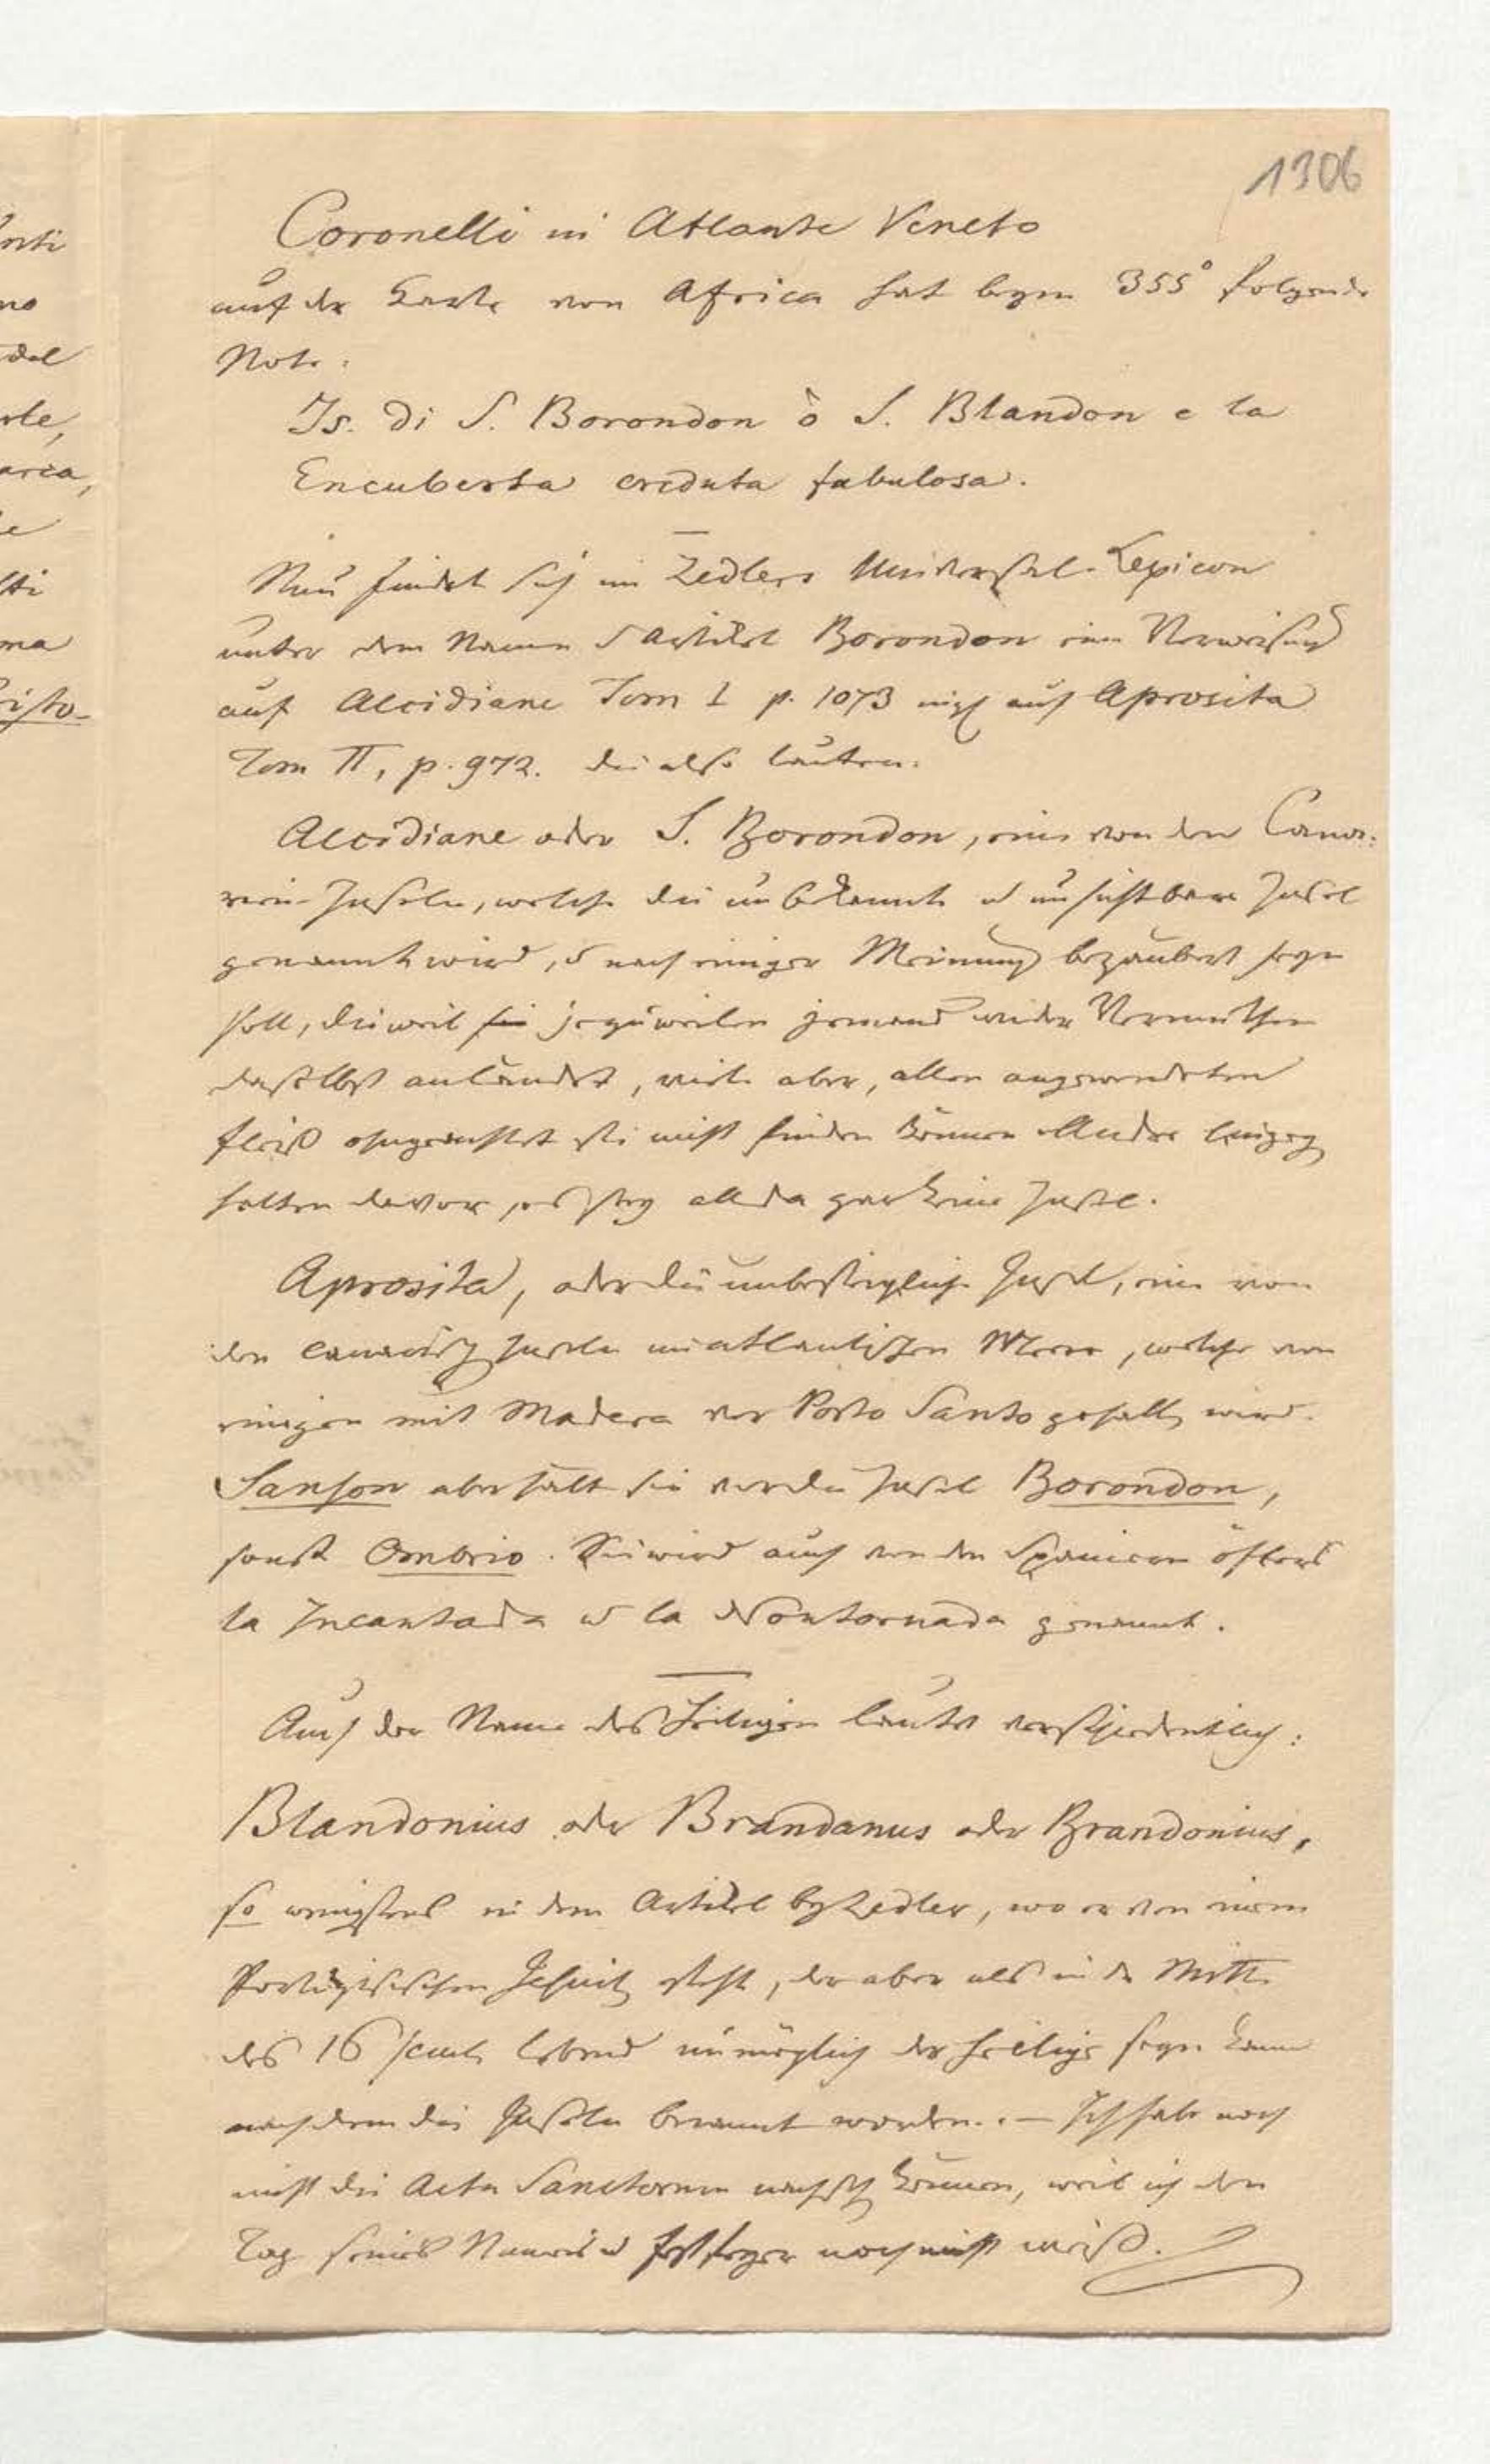 1306
Coronelli in Atlante Veneto
auf der Karte von Africa hat beym 355° folgende
Note:
Is. di S. Borondon ò S. Blandon e la
Encuberta creduta fabulosa.
Nun findet sich im Zedlers Universal-Lexicon
unter dem Namen u Artikel Borondon eine Verweisung
auf Alcidiane Tom I p. 1073 auf Aprosita
Tom II, p. 972. die also lauten:
Alcidiane oder S. Borondon, eine von den Cana-
rien-Inseln, welche die unbekannte u unsichtbare Insel
genannt wird, u nach einiger Meinung bezaubert seyn
soll, dieweil sie jezuweilen jemand wider Vermuthen
daselbst anländet, viele aber, allen angewendeten
Fleiß ohngeachtet sie nicht finden können Andre hingeg
halten davor, es sey allda gar keine Insel.
Aprosita, oder die unbesteigliche Insel, eine von
den canarisch Inseln im atlantischen Meere, welche von
einigen mit Madera vor Porto Santo gehalt wird.
Sanson aber hält sie vor die Insel Borondon,
sonst Ombrio. Sie wird auch von den Spaniern öfters
la Incantada u la Nontornada genannt.
Auch der Name des Heiligen lautet verschiedentlich:
Blandonius oder Brandanus oder Brandonius,
so wenigstens in dem Artikel by Zedler, wo er von einem
Portugisischen Jesuit steht, der aber als in der Mitte
des 16 lebend unmöglich der Heilige seyn kann
nach dem die Inseln benannt worden. — Ich habe noch
nicht die Acta Sanctorum nachseh können, weil ich den
Tag seines Namens u noch nicht weiß.
nti
no
del
rte,
arca,
e
tti
ma
isto-